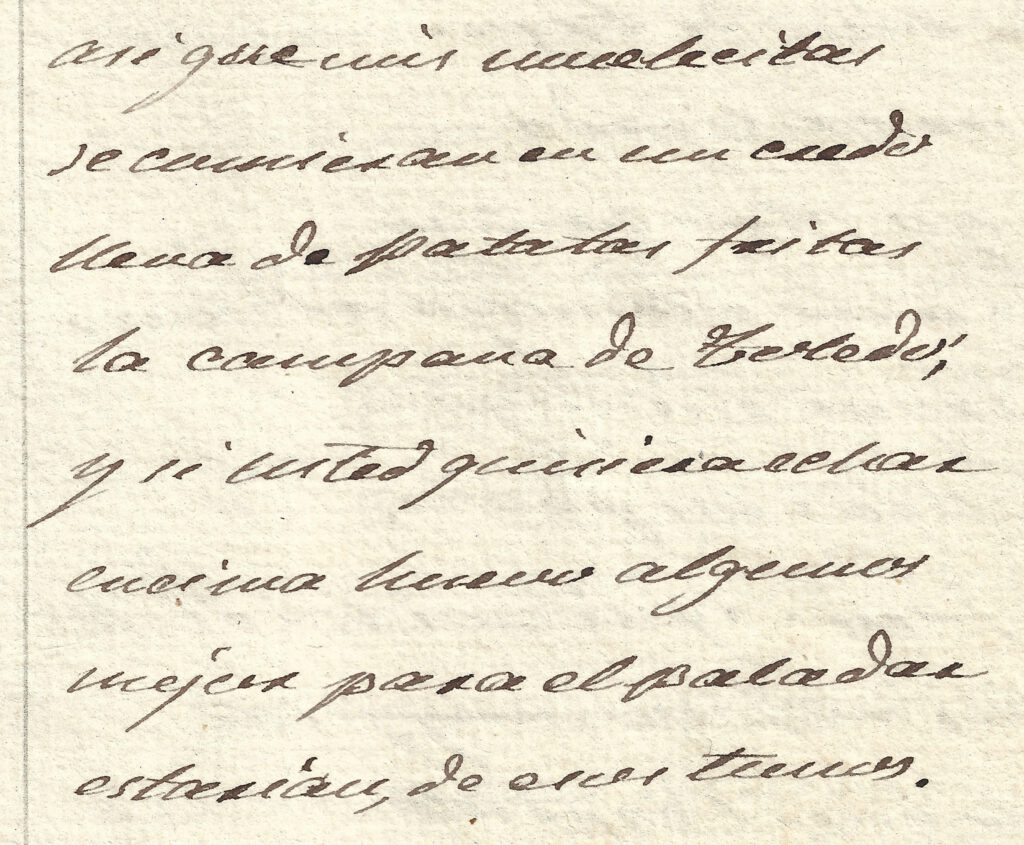 asi que mis muelecitas
se comieran en un credo
llena de patatas fritas
la campana de Toledo;
y si usted quisiera echar
encima huevo algunos
mejor para el paladar
estarían, de esos tunos.